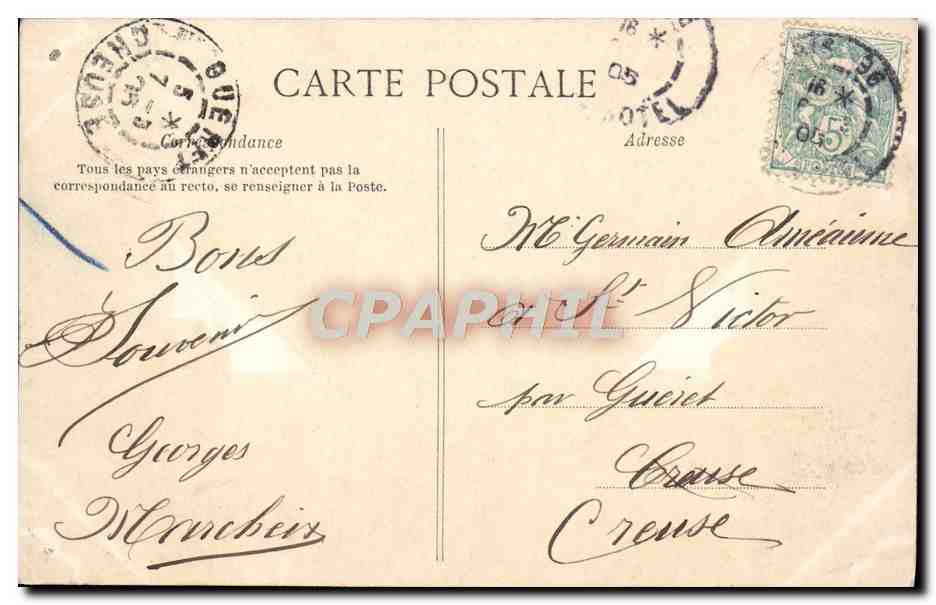 CARTE POSTALE
Correspondance
Tous les pays étrangers n'acceptent pas la
correspondance au recto, se renseigner à la Poste.
Bons
Souvenir
Georges
Marcheix
GUERET
CREUSE
7 5
05
16 *
05
Adresse
5
16 *
05
Mr Germain
à St Victor
par Guéret
Creuse
Creuse
CPAPHIL